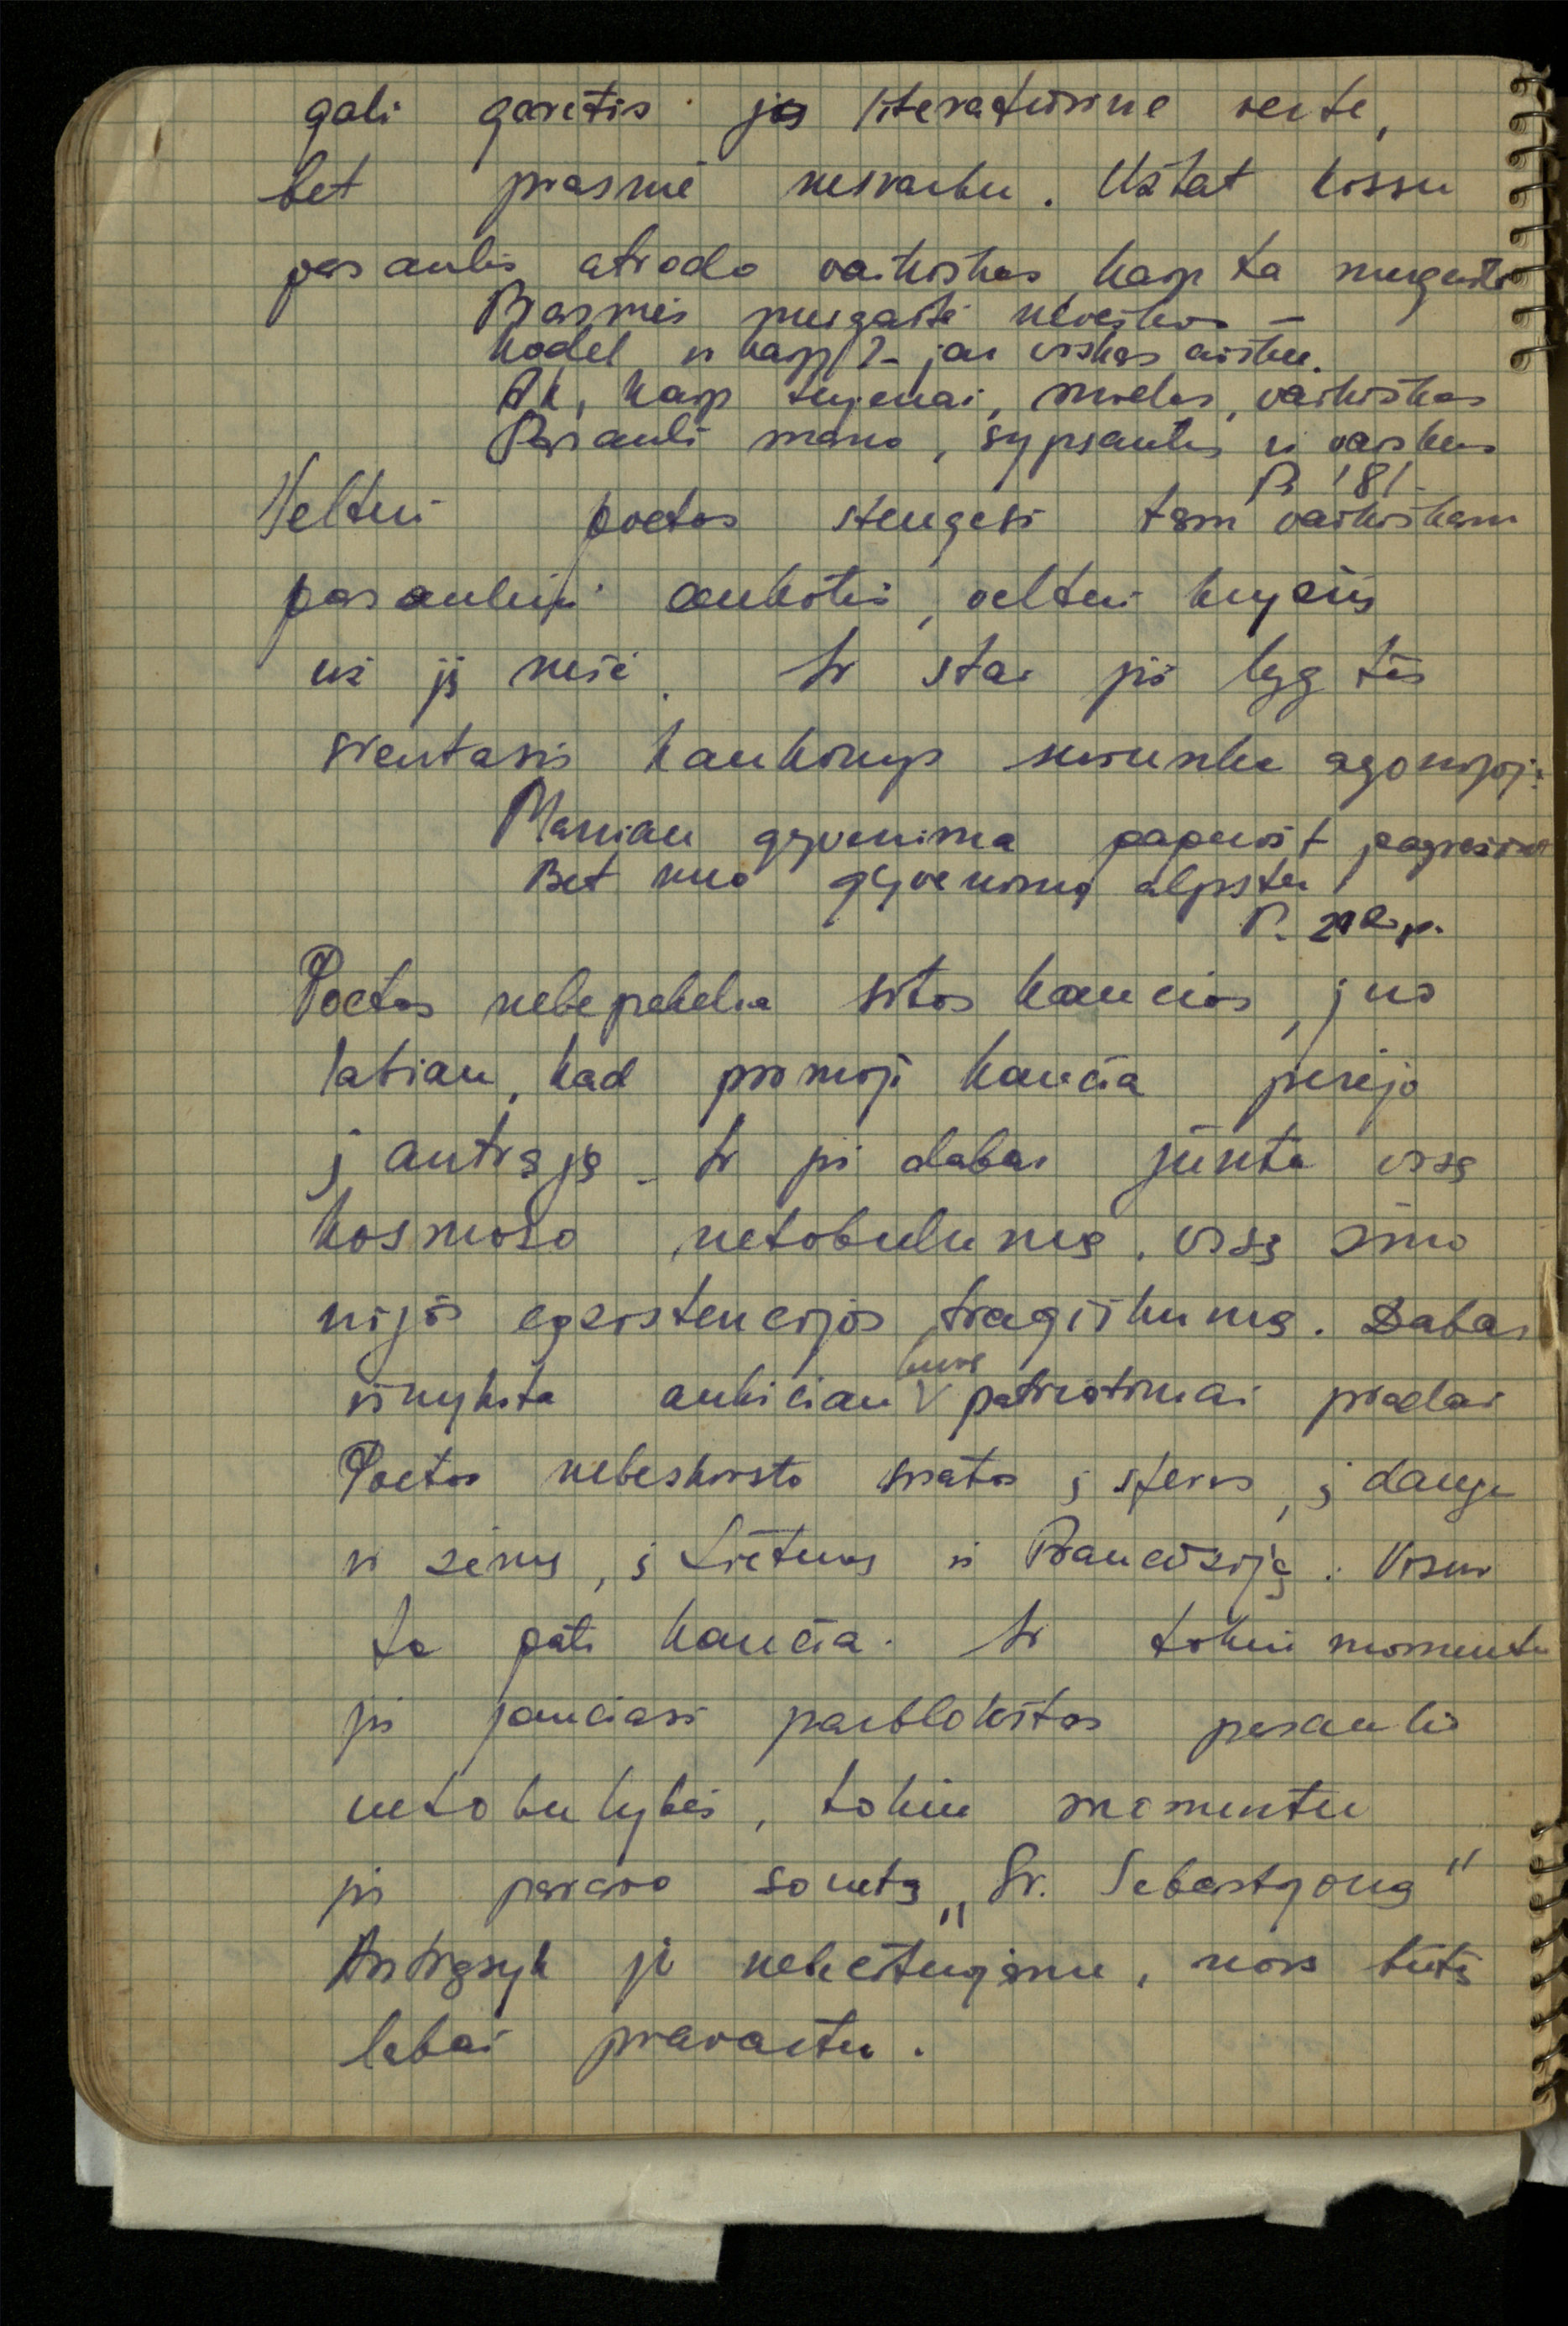 gali garėtis jos literatūrinė vertė,
bet prasmė nesvarbu. Užtat kissu
pasaulis atrodo vaikiškas kaip ta mergaitė
Prasmės mergaitė neieškos –
Kodėl ir kaip? – jau viskas aišku.
Ak, kaip svyenai, mielas, vaikiškas
Pasauli mano, šypsantis ir vaiskus
P. 181.
Veltui poetas stengėsi tam vaikiškam
pasauliui aukotis, veltui kryžių
už jį nešė. Ir štai jis lyg tas
šventasis kankinys surinka agonijoj:
Maniau gyvenimą papuošt pagražint
Bet nuo gyvenimo alpstu
P. 212 p.
Poetas nebepakelia šitos kančios, juo
labiau, kad pirmoji kančia perėjo
į antrąją. Ir jis dabar junta visą
kosmoso netobulumą, visą žmo
nijos egzistencijos tragiškumą. Dabar
išnyksta anksčiau buvę patriotiniai pradai
Poetas nebeskirsto svietos į sferas, į dangų
ir žemę, į Lietuvą ir Prancūziją. Visur
ta pati kančia. Ir tokiu momentu
jis jaučiasi parblokštas pasaulio
netobulybės, tokiu momentu
jis parašo sonetą „Šv. Sebastijoną"
Antrąsyk jo nebecituojame, nors būtų
labai pravartu.